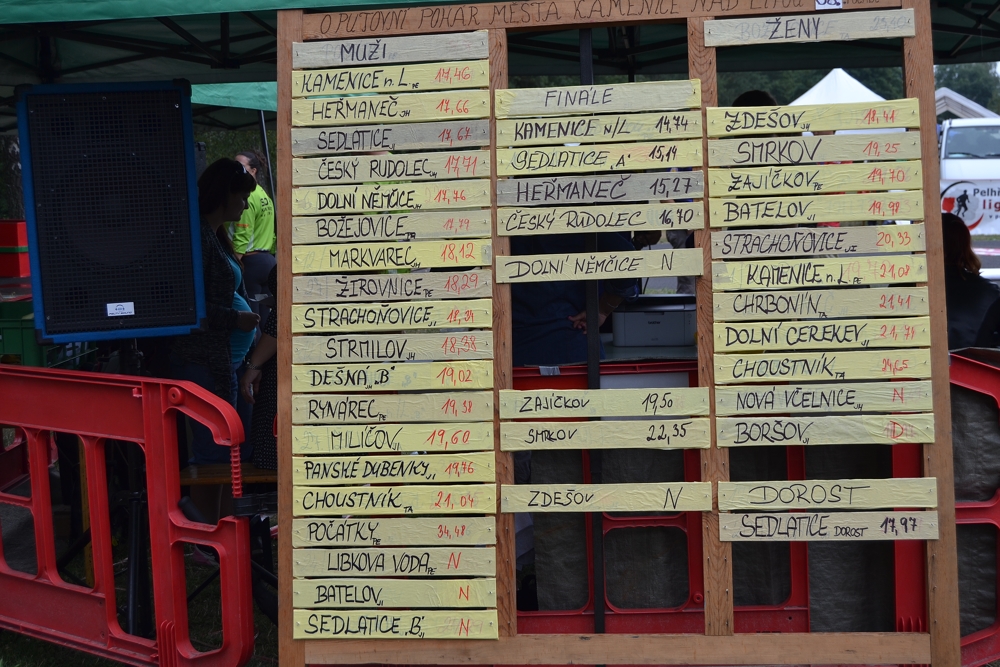 O PUTOVNÍ POHÁR MĚSTA KAMENICE NAD LIPOU
MUŽI
KAMENICE n. L. PE 17,46
HEŘMANEČ JH 17,66
SEDLATICE JI 17,67
ČESKÝ RUDOLEC JH 17,71
DOLNÍ NĚMČICE JH 17,76
BOŽEJOVICE TA 17,79
MARKVAREC JH 18,12
ŽIROVNICE PE 18,29
STRACHOŇOVICE JI 18,34
STRMILOV JH 18,38
DEŠNÁ JH "B" 19,02
RYNÁREC PE 19,38
MILÍČOV JI 19,60
PANSKÉ DUBENKY JI 19,76
CHOUSTNÍK TA 21,04
POČÁTKY PE 34,48
LIBKOVA VODA PE N
BATELOV JI N
SEDLATICE "B" JI N
FINÁLE
KAMENICE N/L 14,74
SEDLATICE "A" 15,14
HEŘMANEČ 15,27
ČESKÝ RUDOLEC 16,70
DOLNÍ NĚMČICE N
ZAJÍČKOV 19,50
SMRKOV 22,35
ZDEŠOV N
ŽENY
ZDEŠOV JH 18,41
SMRKOV 19,25
ZAJÍČKOV PE 19,70
BATELOV JI 19,98
STRACHOŇOVICE JI 20,33
KAMENICE n. L. PE 21,08
CHRBONÍN 21,41
DOLNÍ CEREKEV JI 21,78
CHOUSTNÍK TA 24,65
NOVÁ VČELNICE JH N
BORŠOV JI D
DOROST
SEDLATICE DOROST 17,97
Pelhř
lig